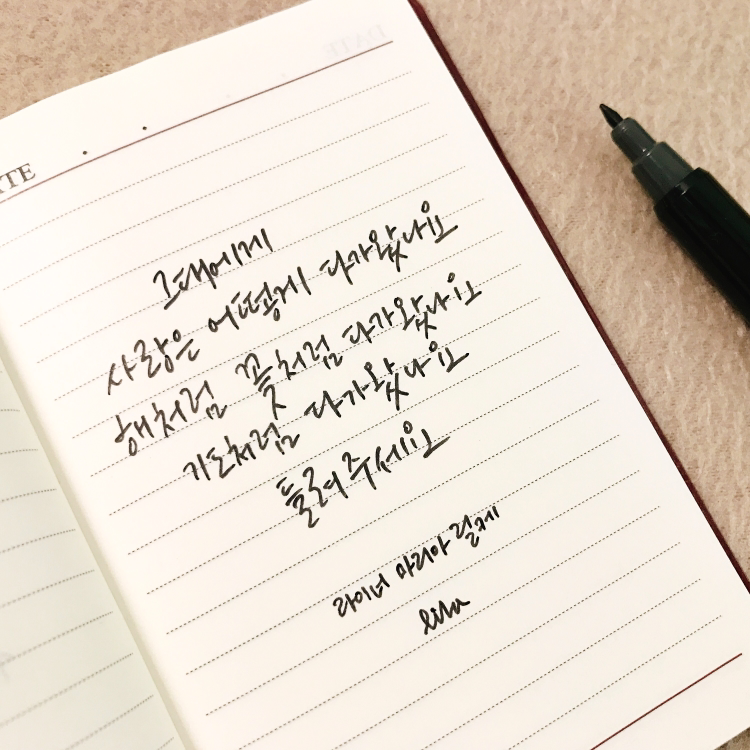 DATE
그대에게
사랑은 어떻게 다가왔나요
햇처럼 꽃처럼 다가왔나요
기도처럼 다가왔나요
들려주세요
라이너 마리아 릴케
lila